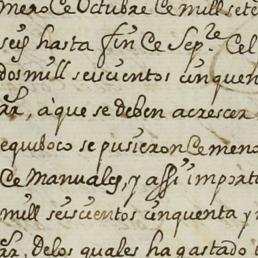 mero de Octubre de mill sete
seys hasta fin de Sepre. del
dos mill seiscientos cinquen
a que se deben acrescer
equiboco se pusieron de meno
de Manuales, y assi import
mill seiscientos cinquenta y
Delos quales ha gastado